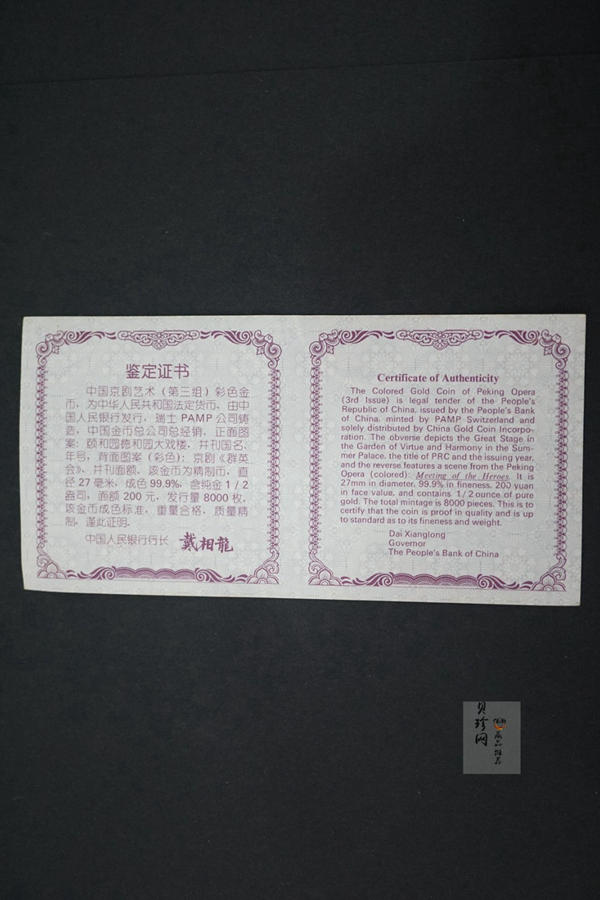 鉴定证书
中国京剧艺术（第三组）彩色金
币，为中华人民共和国法定货币，由中
国人民银行发行，瑞士 PAMP 公司铸
造，中国金币总公司总经销，正面图
案：颐和园德和园大戏楼，并刊国名、
年号，背面图案（彩色）：京剧《群英
会》，并刊面额，该金币为精制币，直
径 27 毫米，成色 99.9%，含纯金 1/2
盎司，面额 200 元，发行量 8000 枚，
该金币成色标准，重量合格，质量精
制，谨此证明。
中国人民银行行长 戴相龍
Certificate of Authenticity
The Colored Gold Coin of Peking Opera
(3rd Issue) is legal tender of the People's
Republic of China, issued by the People's Bank
of China, minted by PAMP Switzerland and
solely distributed by China Gold Coin Incorpo-
ration. The obverse depicts the Great Stage in
the Garden of Virtue and Harmony in the Sum-
mer Palace, the title of PRC and the issuing year,
and the reverse features a scene from the Peking
Opera (colored): Meeting of the Heroes. It is
27mm in diameter, 99.9% in fineness, 200 yuan
in face value, and contains 1/2 ounce of pure
gold. The total mintage is 8000 pieces. This is to
certify that the coin is proof in quality and is up
to standard as to its fineness and weight.
Dai Xianglong
Governor
The People's Bank of China
贝珍网
藏品推荐